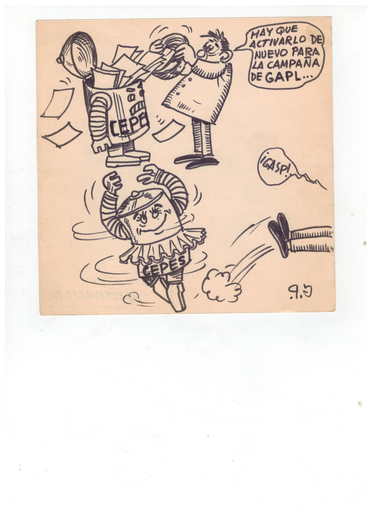 HAY QUE
ACTIVARLO DE
NUEVO PARA
LA CAMPAÑA
DE GAPL...
CEPE
¡GASP!
CEPES